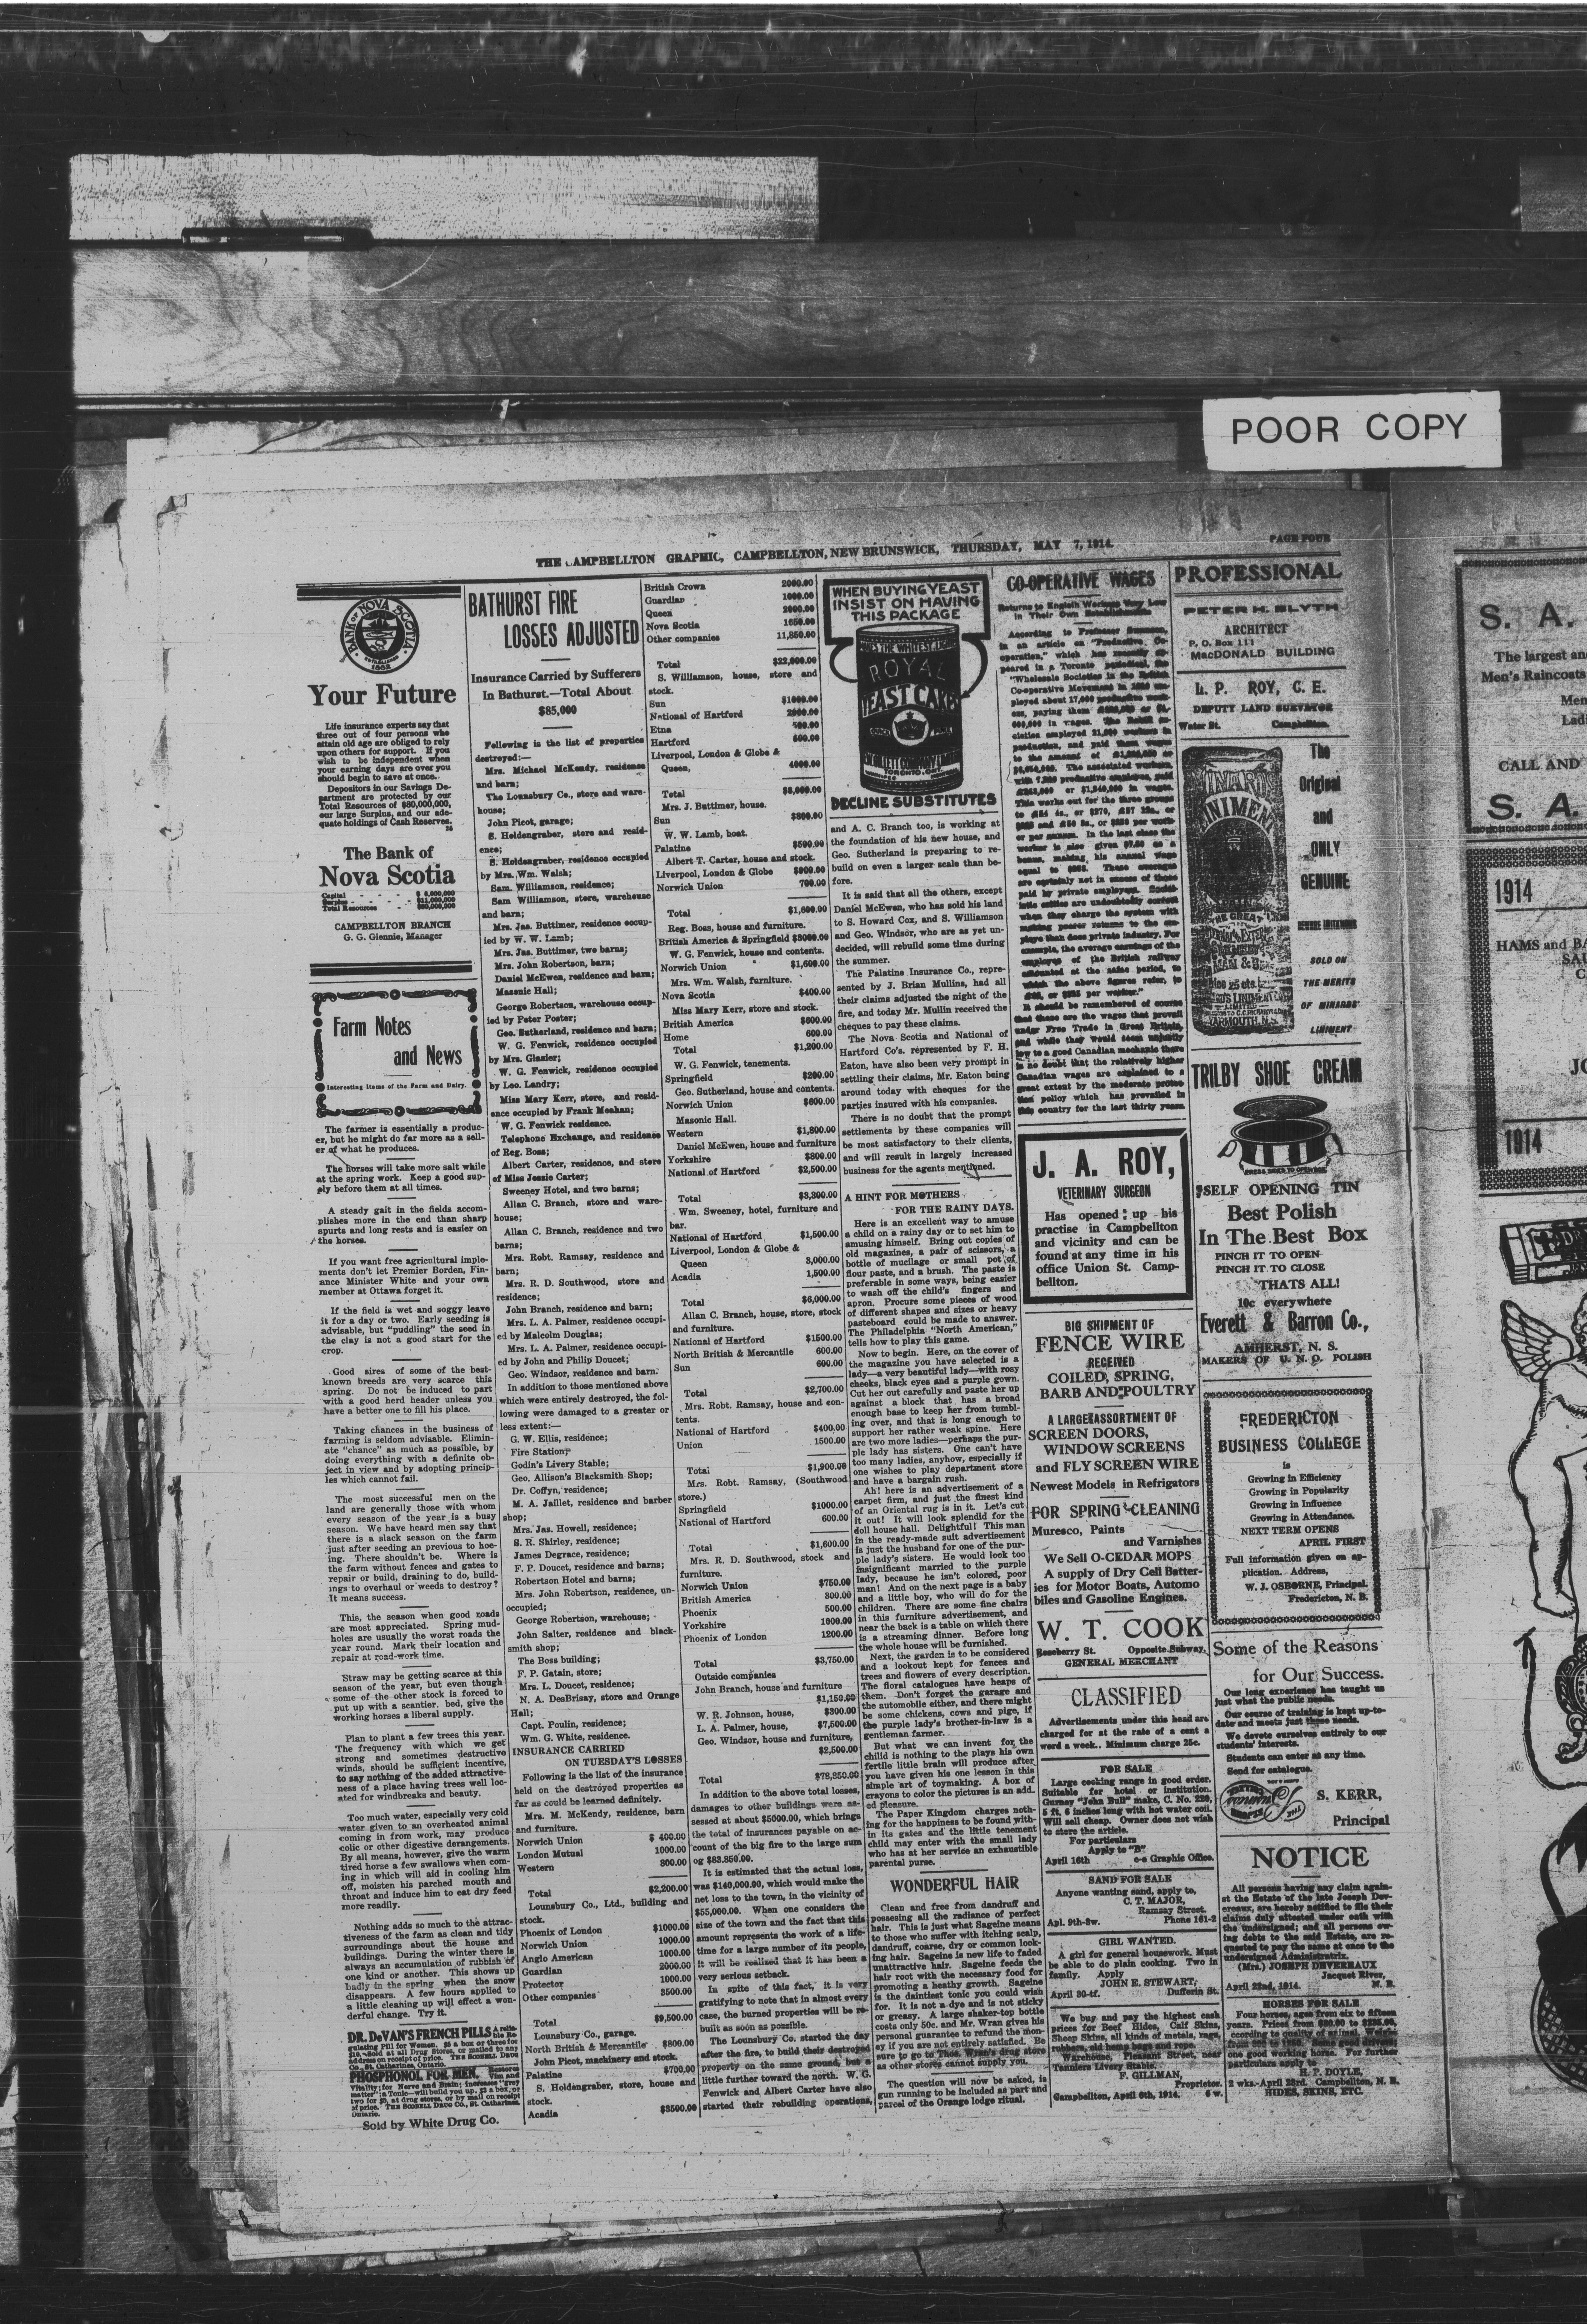 POOR COPY
THE CAMPBELLTON GRAPHIC, CAMPBELLTON, NEW BRUNSWICK, THURSDAY, MAY 7, 1914.
PAGE FOUR
BANK OF NOVA SCOTIA
Your Future
Life insurance experts say that
three out of four persons who
attain old age are obliged to rely
upon others for support. If you
wish to be independent when
your earning days are over you
should begin to save at once.
Depositors in our Savings De-
partment are protected by our
Total Resources of $80,000,000,
our large Surplus, and our ade-
quate holdings of Cash Reserves.
The Bank of
Nova Scotia
CAMPBELLTON BRANCH
G. G. Glennie, Manager
Farm Notes
and News
Interesting Items of the Farm and Dairy.
The farmer is essentially a produc-
er, but he might do far more as a sell-
er of what he produces.
The horses will take more salt while
at the spring work. Keep a good sup-
ply before them at all times.
A steady gait in the fields accom-
plishes more in the end than sharp
spurts and long rests and is easier on
the horses.
If you want free agricultural imple-
ments don't let Premier Borden, Fin-
ance Minister White and your own
member at Ottawa forget it.
If the field is wet and soggy leave
it for a day or two. Early seeding is
advisable, but "puddling" the seed in
the clay is not a good start for the
crop.
Good sires of some of the best-
known breeds are very scarce this
spring. Do not be induced to part
with a good herd header unless you
have a better one to fill his place.
Taking chances in the business of
farming is seldom advisable. Elimin-
ate "chance" as much as possible, by
doing everything with a definite ob-
ject in view and by adopting princip-
les which cannot fail.
The most successful men on the
land are generally those with whom
every season of the year is a busy
season. We have heard men say that
there is a slack season on the farm
just after seeding an previous to hoe-
ing. There shouldn't be. Where is
the farm without fences and gates to
repair or build, draining to do, build-
ings to overhaul or weeds to destroy?
It means success.
This, the season when good roads
are most appreciated. Spring mud-
holes are usually the worst roads the
year round. Mark their location and
repair at road-work time.
Straw may be getting scarce at this
season of the year, but even though
some of the other stock is forced to
put up with a scantier bed, give the
working horses a liberal supply.
Plan to plant a few trees this year.
The frequency with which we get
strong and sometimes destructive
winds, should be sufficient incentive,
to say nothing of the added attractive-
ness of a place having trees well loc-
ated for windbreaks and beauty.
Too much water, especially very cold
water given to an overheated animal
coming in from work, may produce
colic or other digestive derangements.
By all means, however, give the warm
tired horse a few swallows when com-
ing in which will aid in cooling him
off, moisten his parched mouth and
throat and induce him to eat dry feed
more readily.
Nothing adds so much to the attrac-
tiveness of the farm as clean and tidy
surroundings about the house and
buildings. During the winter there is
always an accumulation of rubbish of
one kind or another. This shows up
badly in the spring when the snow
disappears. A few hours applied to
a little cleaning up will effect a won-
derful change. Try it.
DR. DeVAN'S FRENCH PILLS
PHOSPHONOL FOR MEN.
Sold by White Drug Co.
BATHURST FIRE
LOSSES ADJUSTED
Insurance Carried by Sufferers
In Bathurst.—Total About
$85,000
Following is the list of properties
destroyed:—
Mrs. Michael McKendy, residence
and barn;
The Lounsbury Co., store and ware-
house;
John Picot, garage;
S. Holdengraber, store and resid-
ence;
S. Holdengraber, residence occupied
by Mrs. Wm. Walsh;
Sam. Williamson, residence;
Sam Williamson, store, warehouse
and barn;
Mrs. Jas. Buttimer, residence occup-
ied by W. W. Lamb;
Mrs. Jas. Buttimer, two barns;
Mrs. John Robertson, barn;
Daniel McEwen, residence and barn;
Masonic Hall;
George Robertson, warehouse occup-
ied by Peter Poster;
Geo. Sutherland, residence and barn;
W. G. Fenwick, residence occupied
by Mrs. Glasier;
W. G. Fenwick, residence occupied
by Leo. Landry;
Miss Mary Kerr, store, and resid-
ence occupied by Frank Meahan;
W. G. Fenwick residence.
Telephone Exchange, and residence
of Reg. Boss;
Albert Carter, residence, and store
of Miss Jessie Carter;
Sweeney Hotel, and two barns;
Allan C. Branch, store and ware-
house;
Allan C. Branch, residence and two
barns;
Mrs. Robt. Ramsay, residence and
barn;
Mrs. R. D. Southwood, store and
residence;
John Branch, residence and barn;
Mrs. L. A. Palmer, residence occupi-
ed by Malcolm Douglas;
Mrs. L. A. Palmer, residence occupi-
ed by John and Philip Doucet;
Geo. Windsor, residence and barn.
In addition to those mentioned above
which were entirely destroyed, the fol-
lowing were damaged to a greater or
less extent:—
G. W. Ellis, residence;
Fire Station;
Godin's Livery Stable;
Geo. Allison's Blacksmith Shop;
Dr. Coffyn, residence;
M. A. Jaillet, residence and barber
shop;
Mrs. Jas. Howell, residence;
S. R. Shirley, residence;
James Degrace, residence;
F. P. Doucet, residence and barns;
Robertson Hotel and barns;
Mrs. John Robertson, residence, un-
occupied;
George Robertson, warehouse;
John Salter, residence and black-
smith shop;
The Boss building;
F. P. Gatain, store;
Mrs. L. Doucet, residence;
N. A. DesBrisay, store and Orange
Hall;
Capt. Poulin, residence;
Wm. G. White, residence.
INSURANCE CARRIED
ON TUESDAY'S LOSSES
Following is the list of the insurance
held on the destroyed properties as
far as could be learned definitely.
Mrs. M. McKendy, residence, barn
and furniture.
Norwich Union $ 400.00
London Mutual 1000.00
Western 800.00
Total $2,200.00
Lounsbury Co., Ltd., building and
stock.
Phoenix of London $1000.00
Norwich Union 1000.00
Anglo American 1000.00
Guardian 2000.00
Protector 1000.00
Other companies 3500.00
Total $9,500.00
Lounsbury Co., garage.
North British & Mercantile $800.00
John Picot, machinery and stock.
Palatine $700.00
S. Holdengraber, store, house and
stock.
Acadia $3500.00
British Crown 2000.00
Guardian 1000.00
Queen 2000.00
Nova Scotia 1650.00
Other companies 11,850.00
Total
S. Williamson, house, store and
stock.
Sun $1000.00
National of Hartford 2000.00
Etna 500.00
Hartford 600.00
Liverpool, London & Globe &
Queen, 4000.00
Total
Mrs. J. Buttimer, house.
Sun $800.00
W. W. Lamb, boat.
Palatine $500.00
Albert T. Carter, house and stock.
Liverpool, London & Globe $900.00
Norwich Union 700.00
Total $1,600.00
Reg. Boss, house and furniture.
British America & Springfield $3000.00
W. G. Fenwick, house and contents.
Norwich Union $1,600.00
Mrs. Wm. Walsh, furniture.
Nova Scotia $400.00
Miss Mary Kerr, store and stock.
British America $600.00
Home 600.00
Total $1,200.00
W. G. Fenwick, tenements.
Springfield $200.00
Geo. Sutherland, house and contents.
Norwich Union $600.00
Masonic Hall.
Western $1,800.00
Daniel McEwen, house and furniture
Yorkshire $800.00
National of Hartford $2,500.00
Total $3,300.00
Wm. Sweeney, hotel, furniture and
bar.
National of Hartford $1,500.00
Liverpool, London & Globe &
Queen 3,000.00
Acadia 1,500.00
Total $6,000.00
Allan C. Branch, house, store, stock
and furniture.
National of Hartford $1500.00
North British & Mercantile 600.00
Sun 600.00
Total $2,700.00
Mrs. Robt. Ramsay, house and con-
tents.
National of Hartford $400.00
Union 1500.00
Total $1,900.00
Mrs. Robt. Ramsay, (Southwood
store.)
Springfield $1000.00
National of Hartford 600.00
Total $1,600.00
Mrs. R. D. Southwood, stock and
furniture.
Norwich Union $750.00
British America 300.00
Phoenix 500.00
Yorkshire 1000.00
Phoenix of London 1200.00
Total $3,750.00
Outside companies
John Branch, house and furniture
$1,150.00
W. R. Johnson, house, $300.00
L. A. Palmer, house, $7,500.00
Geo. Windsor, house and furniture,
$2,500.00
Total $78,850.00
In addition to the above total losses,
damages to other buildings were as-
sessed at about $5000.00, which brings
the total of insurances payable on ac-
count of the big fire to the large sum
og $83.850.00.
It is estimated that the actual loss,
was $140,000.00, which would make the
net loss to the town, in the vicinity of
$55,000.00. When one considers the
size of the town and the fact that this
amount represents the work of a life-
time for a large number of its people,
it will be realized that it has been a
very serious setback.
In spite of this fact, it is very
gratifying to note that in almost every
case, the burned properties will be re-
built as soon as possible.
The Lounsbury Co. started the day
after the fire, to build their destroyed
property on the same ground, but a
little further toward the north. W. G.
Fenwick and Albert Carter have also
started their rebuilding operations,
WHEN BUYING YEAST
INSIST ON HAVING
THIS PACKAGE
ROYAL
YEAST CAKES
TORONTO, ONT.
DECLINE SUBSTITUTES
and A. C. Branch too, is working at
the foundation of his new house, and
Geo. Sutherland is preparing to re-
build on even a larger scale than be-
fore.
It is said that all the others, except
Daniel McEwen, who has sold his land
to S. Howard Cox, and S. Williamson
and Geo. Windsor, who are as yet un-
decided, will rebuild some time during
the summer.
The Palatine Insurance Co., repre-
sented by J. Brian Mullins, had all
their claims adjusted the night of the
fire, and today Mr. Mullin received the
cheques to pay these claims.
The Nova Scotia and National of
Hartford Co's. represented by F. H.
Eaton, have also been very prompt in
settling their claims, Mr. Eaton being
around today with cheques for the
parties insured with his companies.
There is no doubt that the prompt
settlements by these companies will
be most satisfactory to their clients,
and will result in largely increased
business for the agents mentioned.
A HINT FOR MOTHERS
FOR THE RAINY DAYS.
Here is an excellent way to amuse
a child on a rainy day or to set him to
amusing himself. Bring out copies of
old magazines, a pair of scissors, a
bottle of mucilage or small pot of
flour paste, and a brush. The paste is
preferable in some ways, being easier
to wash off the child's fingers and
apron. Procure some pieces of wood
of different shapes and sizes or heavy
pasteboard could be made to answer.
The Philadelphia "North American,"
tells how to play this game.
Now to begin. Here, on the cover of
the magazine you have selected is a
lady—a very beautiful lady—with rosy
cheeks, black eyes and a purple gown.
Cut her out carefully and paste her up
against a block that has a broad
enough base to keep her from tumbl-
ing over, and that is long enough to
support her rather weak spine. Here
are two more ladies—perhaps the pur-
ple lady has sisters. One can't have
too many ladies, anyhow, especially if
one wishes to play department store
and have a bargain rush.
Ah! here is an advertisement of a
carpet firm, and just the finest kind
of an Oriental rug is in it. Let's cut
it out! It will look splendid for the
doll house hall. Delightful! This man
in the ready-made suit advertisement
is just the husband for one of the pur-
ple lady's sisters. He would look too
insignificant married to the purple
lady, because he isn't colored, poor
man! And on the next page is a baby
and a little boy, who will do for the
children. There are some fine chairs
in this furniture advertisement, and
near the back is a table on which there
is a streaming dinner. Before long
the whole house will be furnished.
Next, the garden is to be considered
and a lookout kept for fences and
trees and flowers of every description.
The floral catalogues have heaps of
them. Don't forget the garage and
the automobile either, and there might
be some chickens, cows and pigs, if
the purple lady's brother-in-law is a
gentleman farmer.
But what we can invent for the
child is nothing to the plays his own
fertile little brain will produce after
you have given his one lesson in this
simple art of toymaking. A box of
crayons to color the pictures is an add.
ed pleasure.
The Paper Kingdom charges noth-
ing for the happiness to be found with-
in its gates and the little tenement
child may enter with the small lady
who has at her service an exhaustible
parental purse.
WONDERFUL HAIR
Clean and free from dandruff and
possesing all the radiance of perfect
hair. This is just what Sageine means
to those who suffer with itching scalp,
dandruff, coarse, dry or common look-
ing hair. Sageine is new life to faded
unattractive hair. Sageine feeds the
hair root with the necessary food for
promoting a heathy growth. Sageine
is the daintest tonic you could wish
for. It is not a dye and is not sticky
or greasy. A large shaker-top bottle
costs only 50c. and Mr. Wran gives his
personal guarantee to refund the mon-
ey if you are not entirely satisfied. Be
sure to go to Thos. Wran's drug store
as other stores cannot supply you.
The question will now be asked, is
gun running to be included as part and
parcel of the Orange lodge ritual.
CO-OPERATIVE WAGES
Returns to English Workers Very Low
in Their Own Establishments
It should be remembered of course
that these are the wages that prevail
under Free Trade in Great Britain,
and while they would seem unjustly
low to a good Canadian mechanic there
is no doubt that the relatively higher
Canadian wages are explained to a
great extent by the moderate protec-
tion policy which has prevailed in
this country for the last thirty years.
J. A. ROY,
VETERINARY SURGEON
Has opened up his
practise in Campbellton
and vicinity and can be
found at any time in his
office Union St. Camp-
bellton.
BIG SHIPMENT OF
FENCE WIRE
RECEIVED
COILED, SPRING,
BARB AND POULTRY
A LARGE ASSORTMENT OF
SCREEN DOORS,
WINDOW SCREENS
and FLY SCREEN WIRE
Newest Models in Refrigators
FOR SPRING CLEANING
Muresco, Paints
and Varnishes
We Sell O-CEDAR MOPS
A supply of Dry Cell Batter-
ies for Motor Boats, Automo
biles and Gasoline Engines.
W. T. COOK
Roseberry St. Opposite Subway.
GENERAL MERCHANT
CLASSIFIED
Advertisements under this head are
charged for at the rate of a cent a
word a week. Minimum charge 25c.
FOR SALE
Large cooking range in good order.
Suitable for hotel or institution.
Gurney "John Bull" make, C. No. 220,
5 ft. 6 inches long with hot water coil.
Will sell cheap. Owner does not wish
to store the article.
For particulars
Apply to "B"
April 16th o-o Graphic Office.
SAND FOR SALE
Anyone wanting sand, apply to,
C. T. MAJOR,
Ramsay Street.
Apl. 9th-8w. Phone 161-2
GIRL WANTED.
A girl for general housework. Must
be able to do plain cooking. Two in
family. Apply
JOHN E. STEWART,
April 30-tf. Dufferin St.
We buy and pay the highest cash
prices for Beef Hides, Calf Skins,
Sheep Skins, all kinds of metals, rags,
rubbers, old hemp bags and rope.
Warehouse, Pleasant Street, near
Tanniers Livery Stable.
F. GILLMAN,
Proprietor.
Campbellton, April 6th, 1914. 6 w.
PROFESSIONAL
PETER H. BLYTH
ARCHITECT
P. O. Box 113
MacDONALD BUILDING
L. P. ROY, C. E.
DEPUTY LAND SURVEYOR
Water St. Campbellton.
MINARD'S
LINIMENT
YARMOUTH, N.S.
The
Original
and
ONLY
GENUINE
BEWARE IMITATIONS
SOLD ON
THE MERITS
OF MINARDS'
LINIMENT
TRILBY SHOE CREAM
SELF OPENING TIN
Best Polish
In The Best Box
PINCH IT TO OPEN
PINCH IT TO CLOSE
THATS ALL!
10c everywhere
Everett & Barron Co.,
AMHERST, N. S.
MAKERS OF U. N. O. POLISH
FREDERICTON
BUSINESS COLLEGE
is
Growing in Efficiency
Growing in Popularity
Growing in Influence
Growing in Attendance.
NEXT TERM OPENS
APRIL FIRST
Full information given on ap-
plication. Address,
W. J. OSBORNE, Principal.
Fredericton, N. B.
Some of the Reasons
for Our Success.
Our long experience has taught us
just what the public needs.
Our course of training is kept up-to-
date and meets just those needs.
We devote ourselves entirely to our
students' interests.
Students can enter at any time.
Send for catalogue.
S. KERR,
Principal
NOTICE
All persons having any claim again-
st the Estate of the late Joseph Dev-
ereaux, are hereby notified to file their
claims duly attested under oath with
the undersigned; and all persons ow-
ing debts to the said Estate, are re-
quested to pay the same at once to the
undersigned Administratrix.
(Mrs.) JOSEPH DEVEREAUX
Jacquet River,
April 22nd, 1914. N. B.
HORSES FOR SALE
Four horses, ages from six to fifteen
one good working horse. For further
particulars apply to
H. P. DOYLE,
2 wks-April 23rd. Campbellton, N. B.
HIDES, SKINS, ETC.
S. A.
The largest an
Men's Raincoats
Men
Ladi
CALL AND
S. A.
1914
HAMS and BA
SAU
C
JO
1914